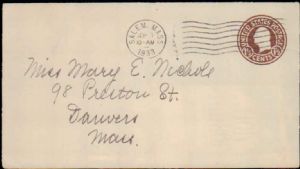 SALEM, MASS.
10-AM
1933
UNITED STATES POSTAGE
CENTS
Miss Mary E. Nichols
98 Preston St.
Danvers
Mass.